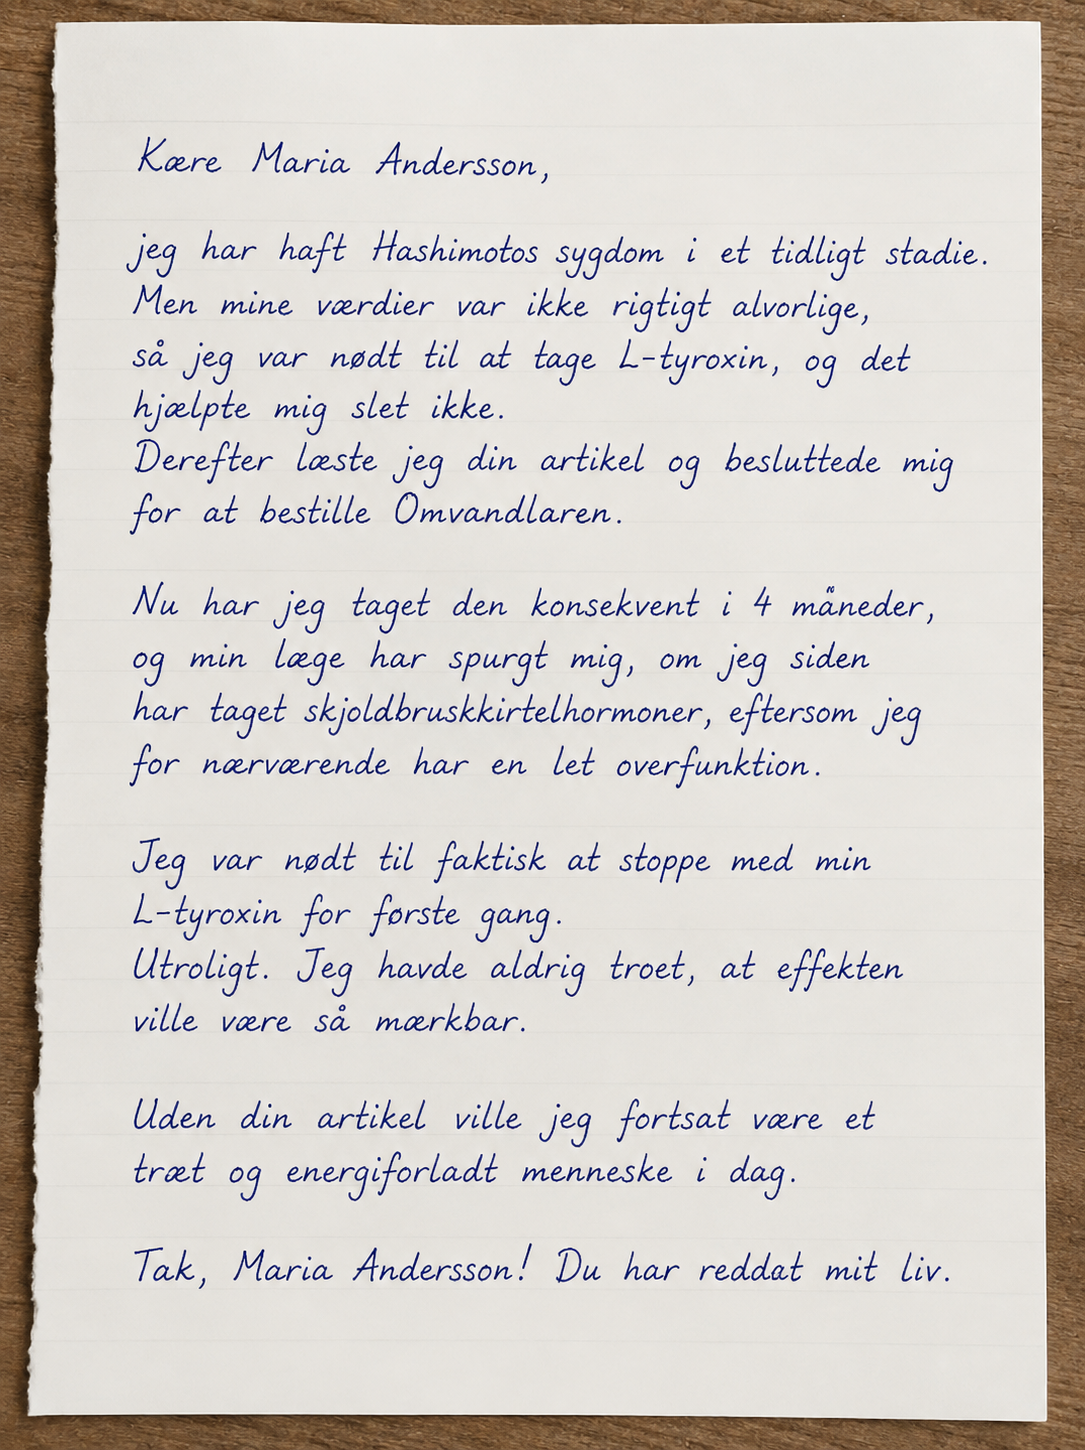 Kære Maria Andersson,
jeg har haft Hashimotos sygdom i et tidligt stadie.
Men mine værdier var ikke rigtigt alvorlige,
så jeg var nødt til at tage L-tyroxin, og det
hjælpte mig slet ikke.
Derefter læste jeg din artikel og besluttede mig
for at bestille Omvandlaren.
Nu har jeg taget den konsekvent i 4 måneder,
og min læge har spurgt mig, om jeg siden
har taget skjoldbruskkirtelhormoner, eftersom jeg
for nærværende har en let overfunktion.
Jeg var nødt til faktisk at stoppe med min
L-tyroxin for første gang.
Utroligt. Jeg havde aldrig troet, at effekten
ville være så mærkbar.
Uden din artikel ville jeg fortsat være et
træt og energiforladt menneske i dag.
Tak, Maria Andersson! Du har reddat mit liv.